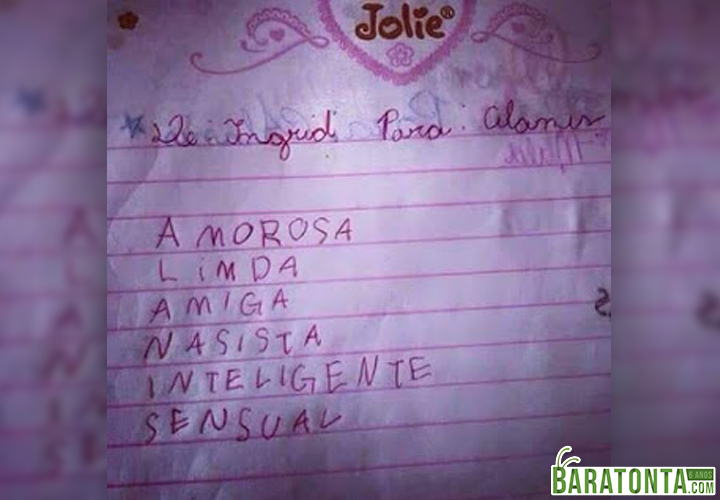 Jolie®
De: Ingrid Para: Alanis
AMOROSA
LiNDA
AMIGA
NASISTA
INTELIGENTE
SENSUAL
BARATONTA
6 ANOS
.COM